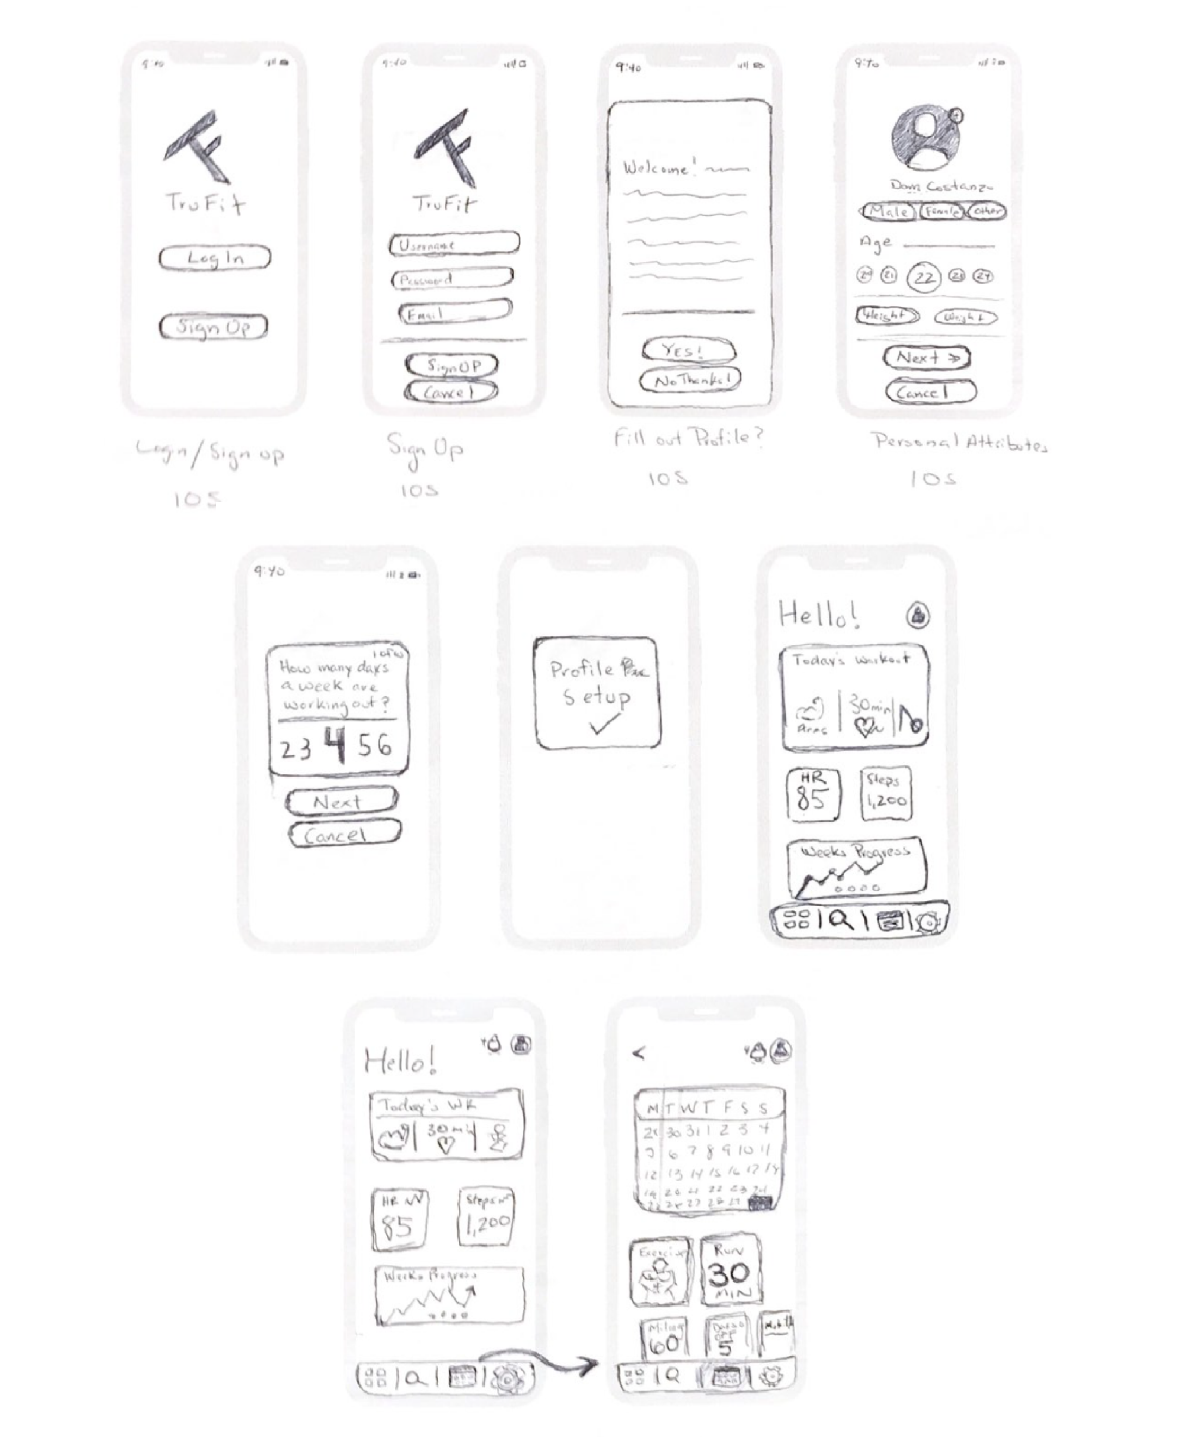 9:40
TruFit
Log In
Sign Up
Login/Sign up
IOS
9:40
TruFit
Username
Password
Email
Sign UP
Cancel
Sign Up
IOS
9:40
Welcome!
YES!
No Thanks!
Fill out Profile?
IOS
9:40
Dom Costanzo
Male Female Other
Age
20 21 22 23 24
Height Weight
Next >>
Cancel
Personal Attributes
IOS
9:40
1 of 10
How many days
a week are
working out?
2 3 4 5 6
Next
Cancel
Profile
Setup
Hello!
Today's Workout
Arms
30 min
HR
85
Steps
1,200
Weeks Progress
Hello!
Today's WR
HR
85
Steps
1,200
Weeks Progress
<
M T W T F S S
30 31 1 2 3 4
6 7 8 9 10 11
12 13 14 15 16 17 18
Exercise
Run
30
MIN
60
5